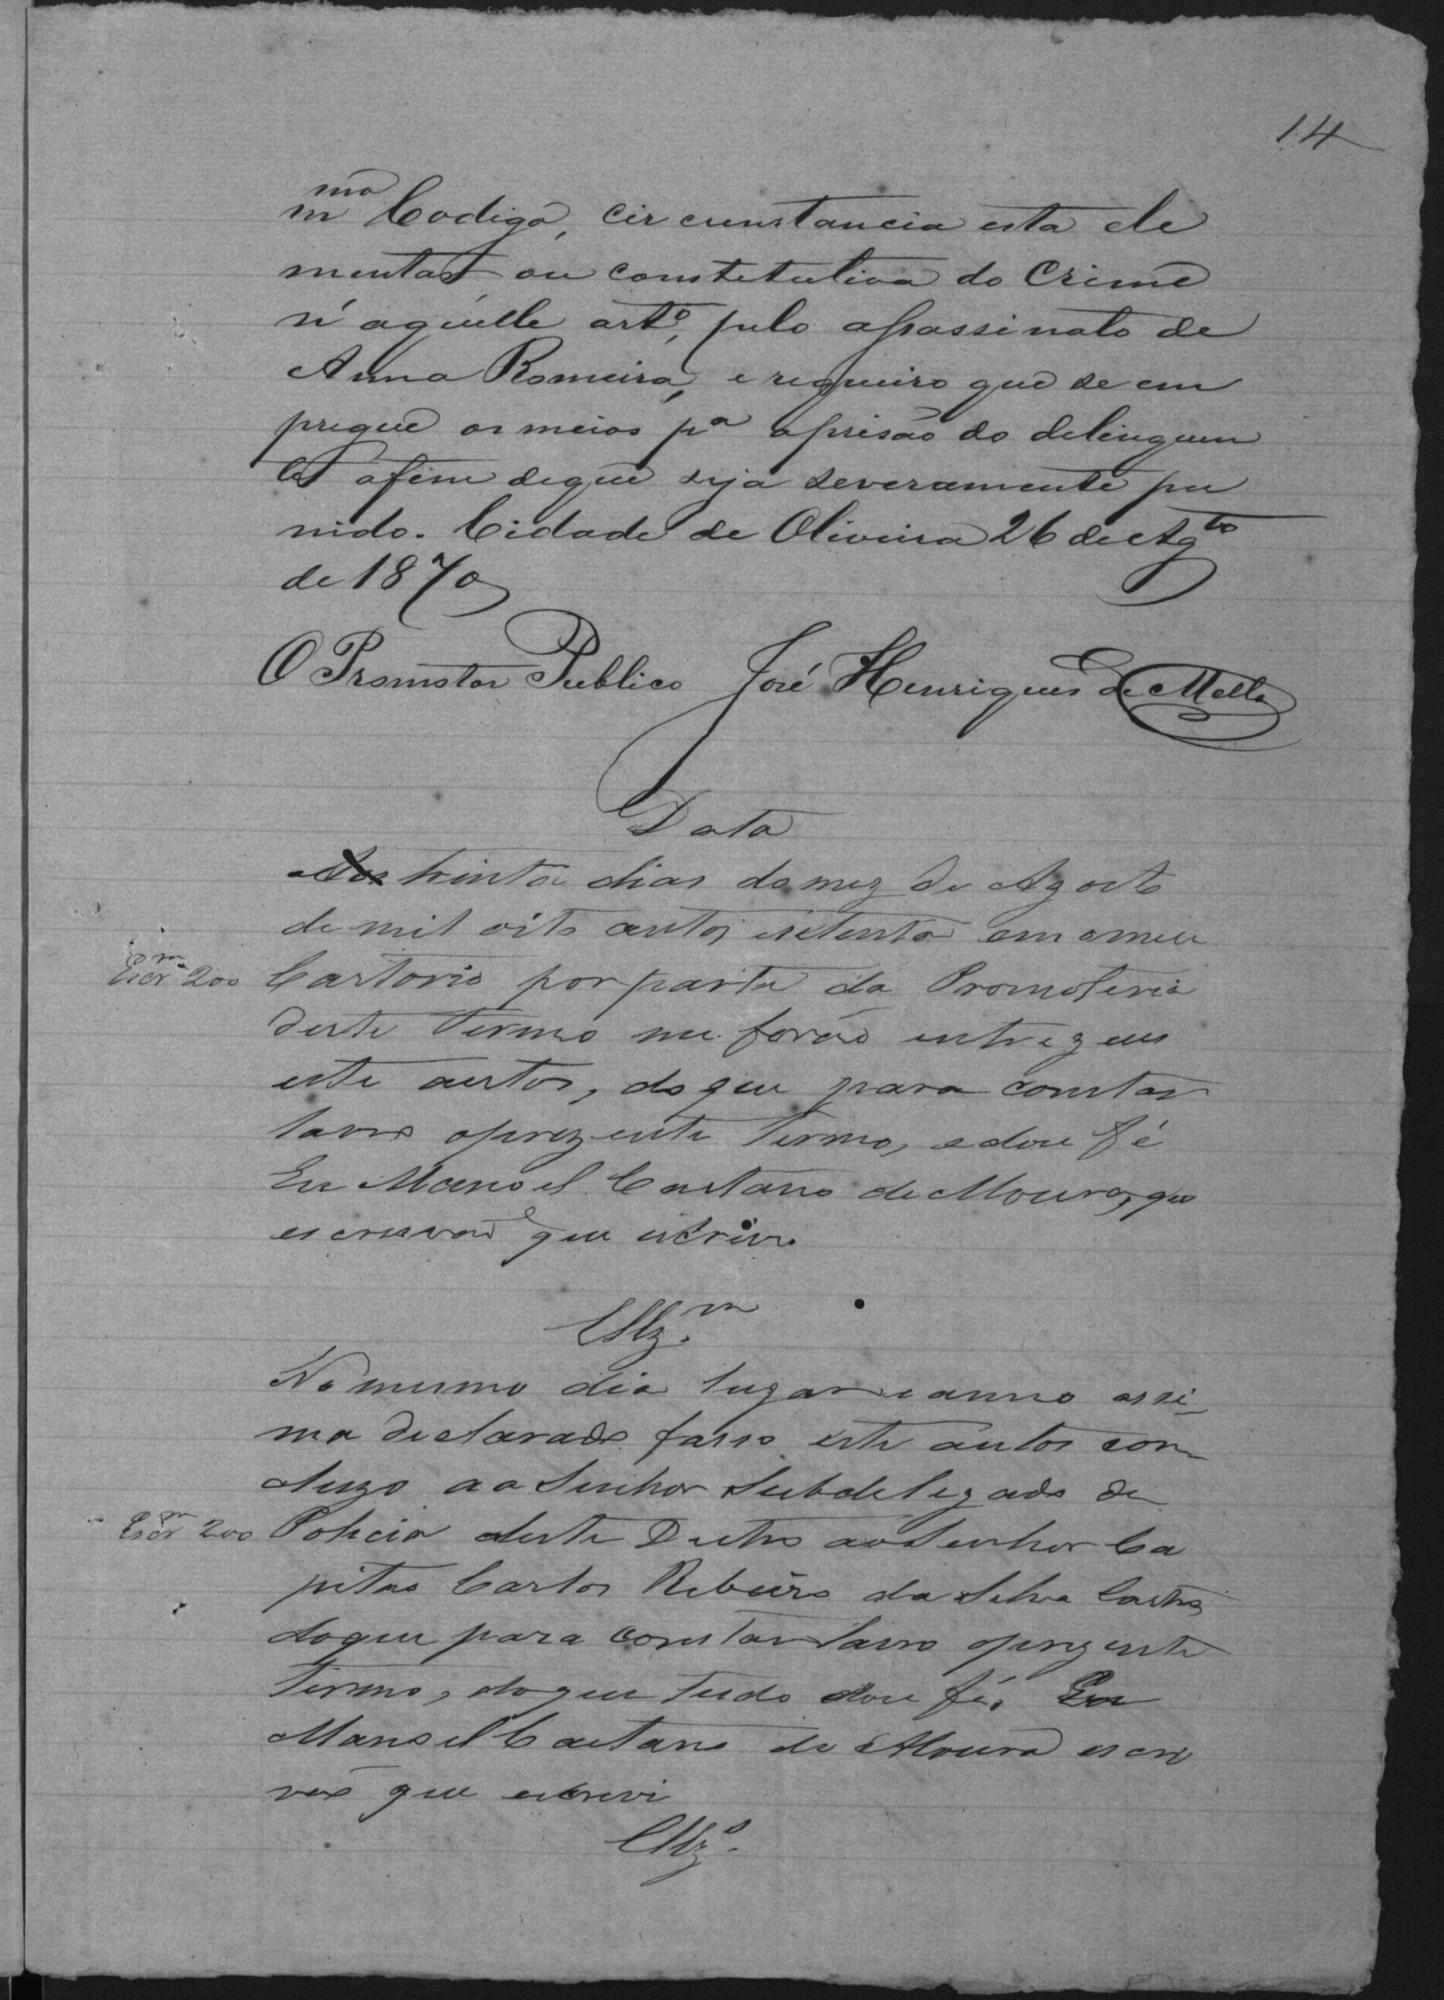 14
mmo Codigo, circunstancia esta ele
mentar ou constitutiva do Crime
n'aquelle arto, pelo assassinato de
Anna Romeira, e requeiro que se em
pregue os meios pa a prisão do delinquen
te afim de que seja severamente pu
nido. Cidade de Oliveira 26 de Agto
de 1870
O Promotor Publico José Henriques de Mello
Data
Aos trinta dias do mez de Agosto
de mil oito centos e setenta em o meu
Escrm 200 Cartorio por parte da Promoteria
deste Termo me forão entregues
este autos, do que para constar
lavro o prezente termo, e dou fé
Eu Manoel Caetano de Moura,
escrivão que escrivi.
Clzm.
No mesmo dia lugar e anno assi
ma declarado fasso este autos con
cluzo ao Senhor Subdelegado de
Escrm 200 Policia deste Destro ao Senhor Ca
pitão Carlos Ribeiro da Silva Castro
do que para constar lavro o prezente
termo, do que tudo dou fé. Eu
Manoel Caetano de Moura escri
vão que escrevi
Clzo.